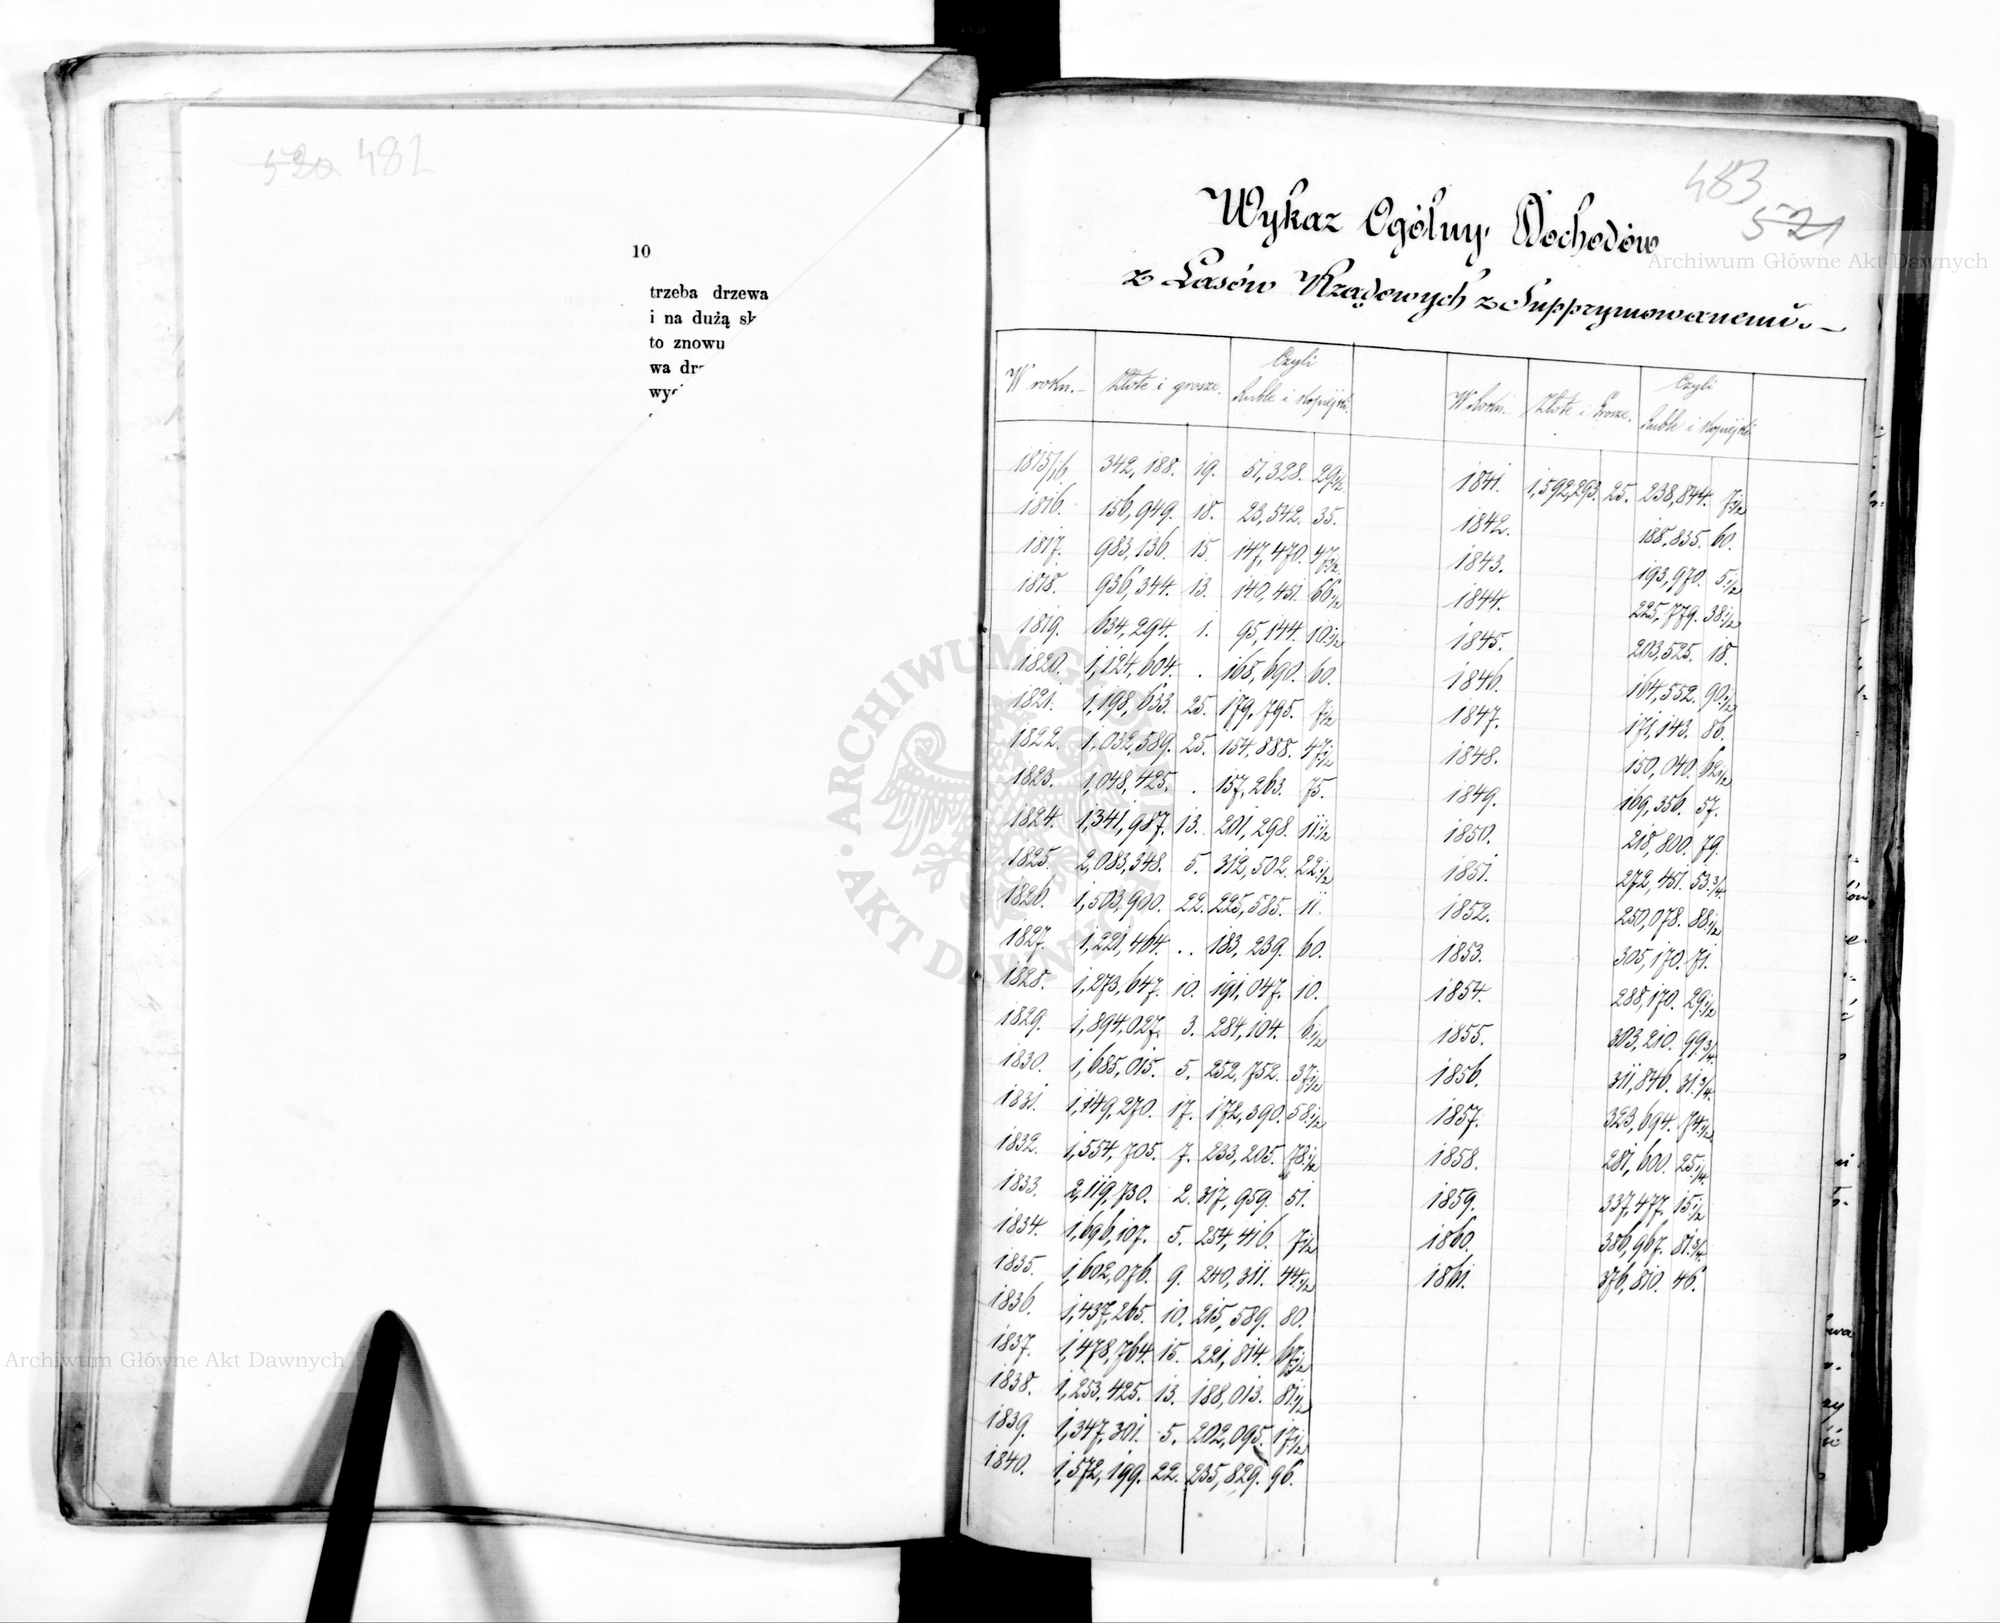 520 482
10
trzeba drzewa
i na dużą
to znowu
wa
483
521
Wykaz Ogólny Dochodów
z Lasów Rządowych z Supprymowanemi.
W roku. Złote i grosze. Czyli Ruble i Kopiejki. W Roku. Złote i Grosze. Czyli Ruble i Kopiejki.
1815/16. 342,188. 19. 51,328. 29½ 1841. 1,592,293. 25. 238,844. 7½
1816. 156,949. 18. 23,542. 35. 1842. 188,835. 60.
1817. 983,136. 15. 147,470. 47½ 1843. 193,970. 5½
1818. 936,344. 13. 140,451. 66½ 1844. 225,779. 38½
1819. 634,294. 1. 95,144. 10½ 1845. 203,525. 18.
1820. 1,124,604. . 168,690. 60. 1846. 164,552. 90½
1821. 1,198,633. 25. 179,795. 7½ 1847. 171,143. 86.
1822. 1,032,589. 25. 154,888. 47½ 1848. 150,040. 62½
1823. 1,048,425. . 157,263. 75. 1849. 169,356. 57.
1824. 1,341,987. 13. 201,298. 11½ 1850. 218,800. 79.
1825. 2,083,348. 5. 312,502. 22½ 1851. 272,451. 53¾
1826. 1,503,900. 22. 225,585. 11. 1852. 250,078. 88½
1827. 1,221,464. .. 183,239. 60. 1853. 305,170. 71.
1828. 1,273,647. 10. 191,047. 10. 1854. 288,170. 29½
1829. 1,894,027. 3. 284,104. 6½ 1855. 303,210. 99¾
1830. 1,685,015. 5. 252,752. 37½ 1856. 311,846. 31¾
1831. 1,149,270. 17. 172,390. 58½ 1857. 323,694. 74½
1832. 1,554,705. 7. 233,205. 78½ 1858. 281,600. 25¼
1833. 2,119,730. 2. 317,959. 51. 1859. 337,477. 15½
1834. 1,696,107. 5. 254,416. 7½ 1860. 386,967. 81¾
1835. 1,602,076. 9. 240,311. 44½ 1861. 376,810. 46.
1836. 1,437,265. 10. 215,589. 80.
1837. 1,478,764. 15. 221,814. 67½
1838. 1,253,425. 13. 188,013. 81½
1839. 1,347,301. 5. 202,095. 17½
1840. 1,572,199. 22. 235,829. 96.
Archiwum Główne Akt Dawnych
Archiwum Główne Akt Dawnych
ARCHIWUM GŁÓWNE AKT DAWNYCH